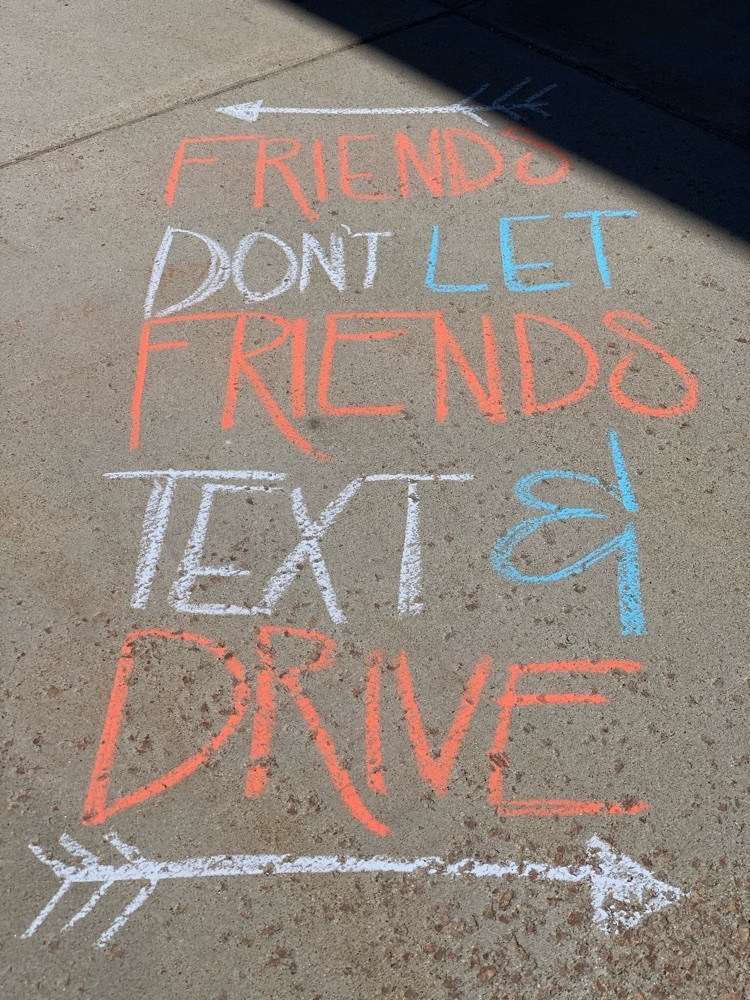 FRIENDS
DON'T LET
FRIENDS
TEXT &
DRIVE